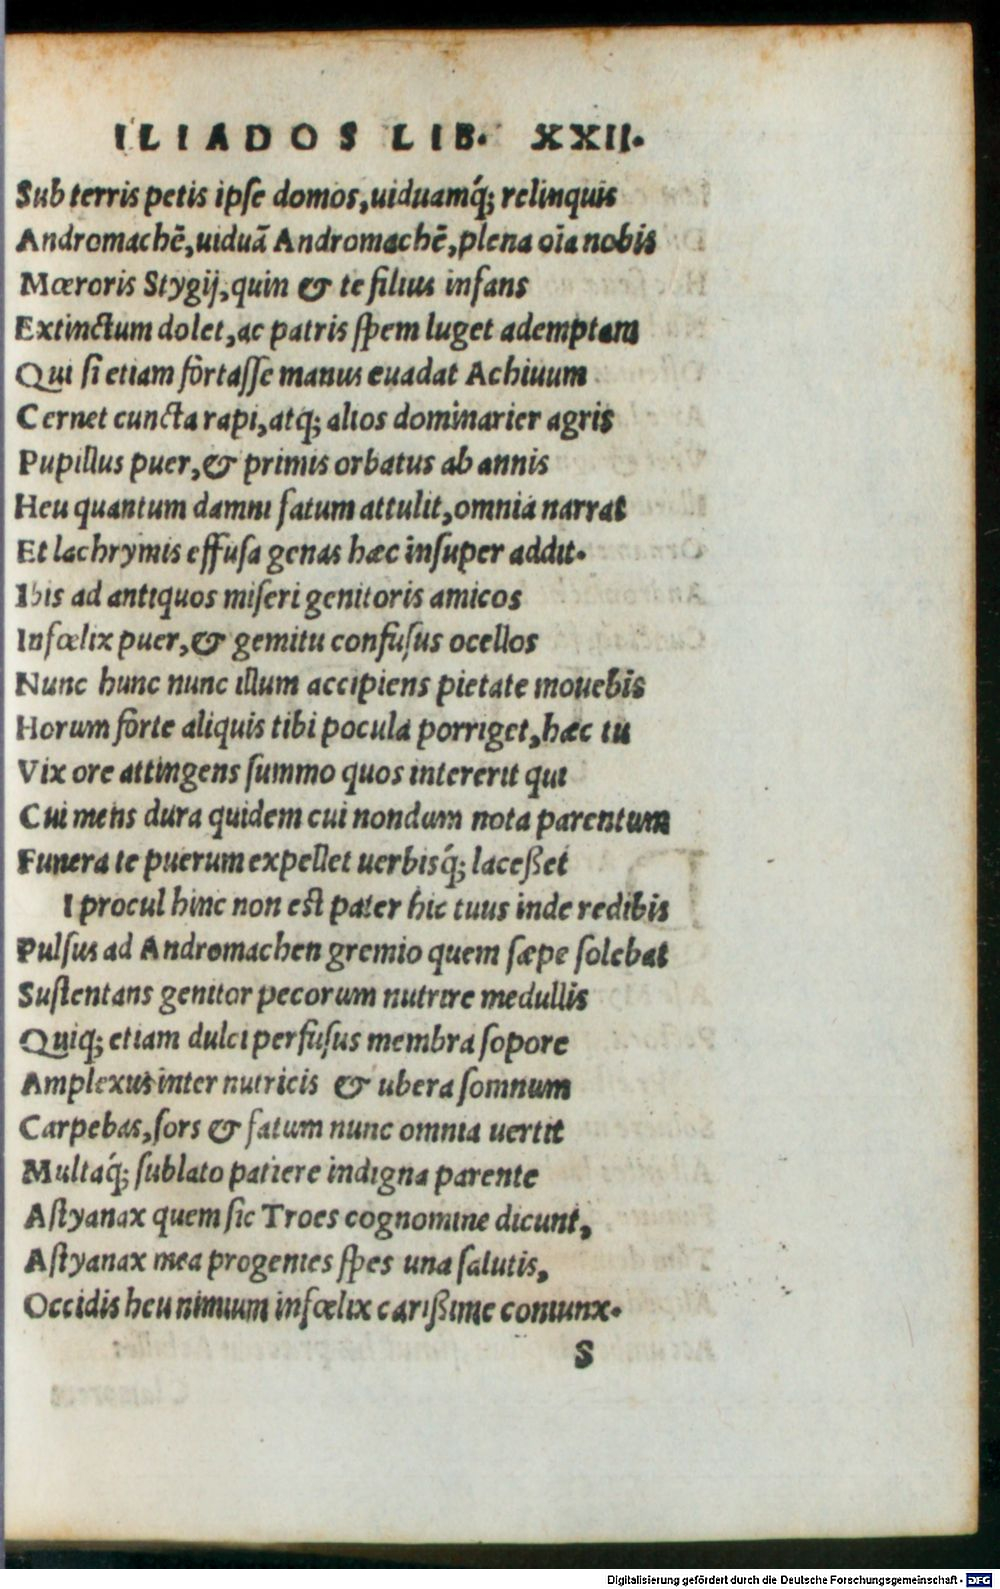 ILIADOS LIB. XXII.
Sub terris petis ipſe domos, uiduamq́; relinquis
Andromachē, uiduā Andromachē, plena oīa nobis
Mœroris Stygij, quin & te filius infans
Extinctum dolet, ac patris ſpem luget ademptam
Qui ſi etiam fortaſſe manus euadat Achiuum
Cernet cuncta rapi, atq; alios dominarier agris
Pupillus puer, & primis orbatus ab annis
Heu quantum damni fatum attulit, omnia narrat
Et lachrymis effuſa genas hæc inſuper addit.
Ibis ad antiquos miſeri genitoris amicos
Infœlix puer, & gemitu confuſus ocellos
Nunc hunc nunc illum accipiens pietate mouebis
Horum forte aliquis tibi pocula porriget, hæc tu
Vix ore attingens ſummo quos intererit qui
Cui mens dura quidem cui nondum nota parentum
Funera te puerum expellet uerbisq́; laceßet
I procul hinc non est pater hic tuus inde redibis
Pulſus ad Andromachen gremio quem ſæpe ſolebat
Suſtentans genitor pecorum nutrire medullis
Quiq; etiam dulci perfuſus membra ſopore
Amplexus inter nutricis & ubera ſomnum
Carpebas, ſors & fatum nunc omnia uertit
Multaq́; ſublato patiere indigna parente
Aſtyanax quem ſic Troes cognomine dicunt,
Aſtyanax mea progenies ſpes una ſalutis,
Occidis heu nimium infœlix carißime coniunx.
S
Digitalisierung gefördert durch die Deutsche Forschungsgemeinschaft - DFG